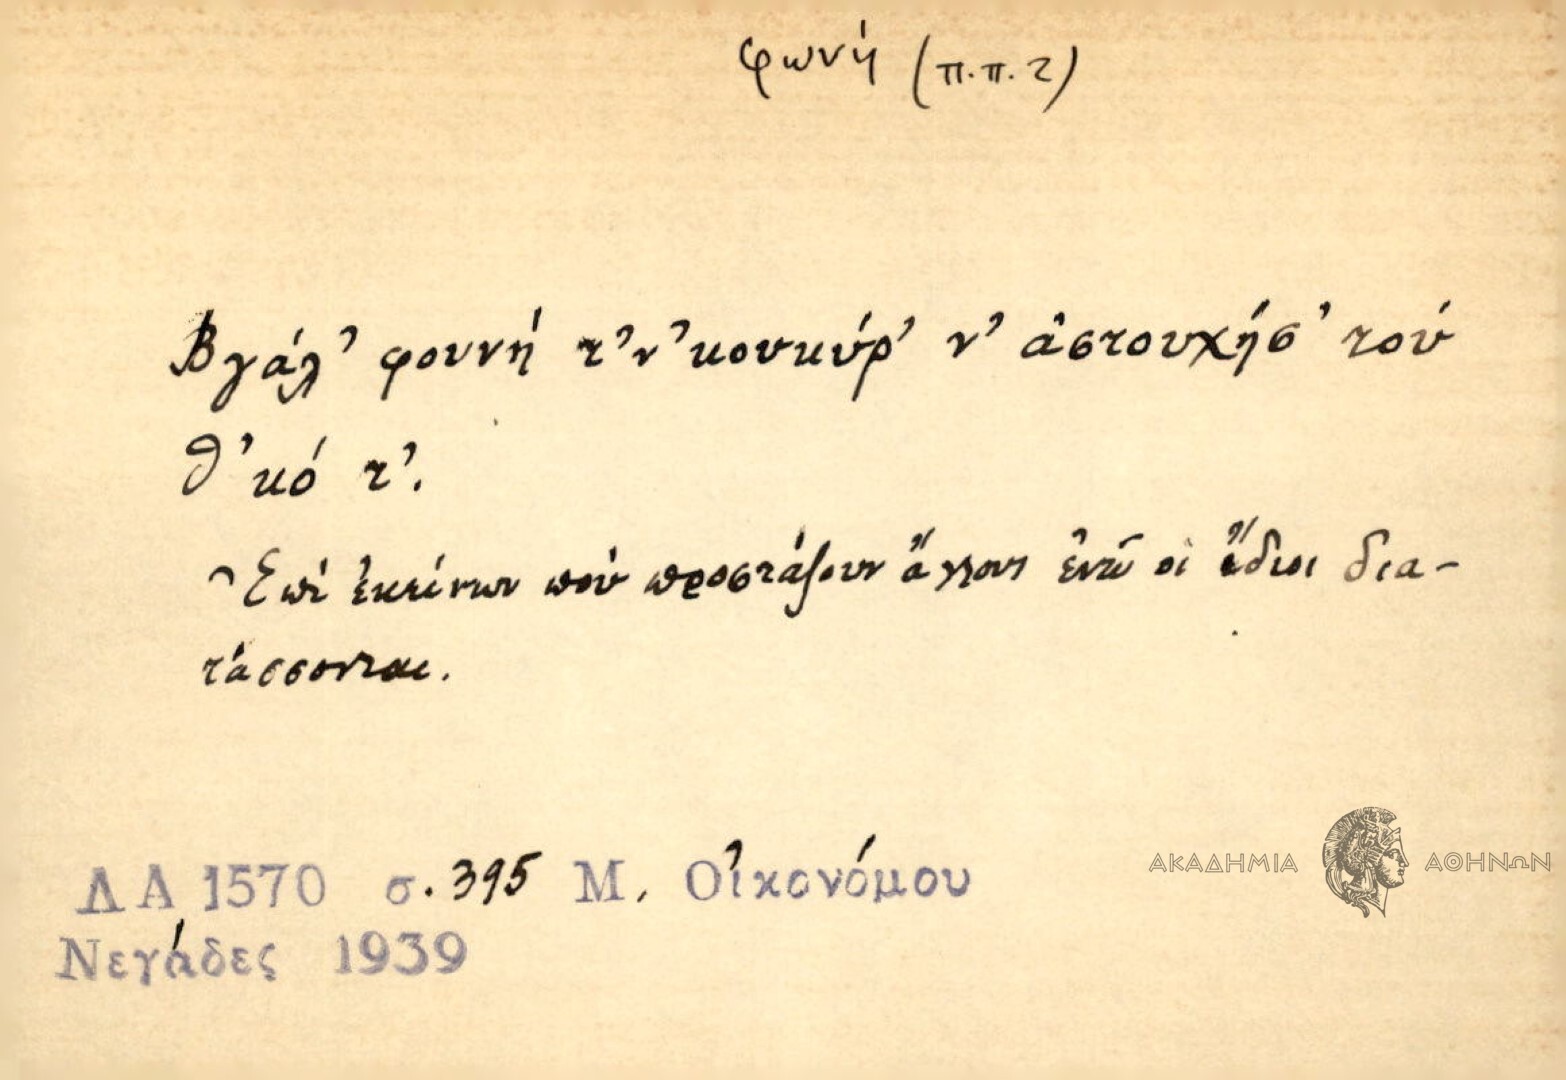 φωνή (π.π. 2)
Βγάλ' φουνή τ'ν' κουκύρ' ν' ἀστουχήσ' τού
θ'κό τ'.
Ἐπί ἐκείνων πού προστάζουν ἄλλους ἐνῶ οἱ ἴδιοι δια-
τάσσονται.
ΛΑ 1570 σ. 395 Μ. Οἰκονόμου
Νεγάδες 1939
ΑΚΑΔΗΜΙΑ ΑΘΗΝΩΝ